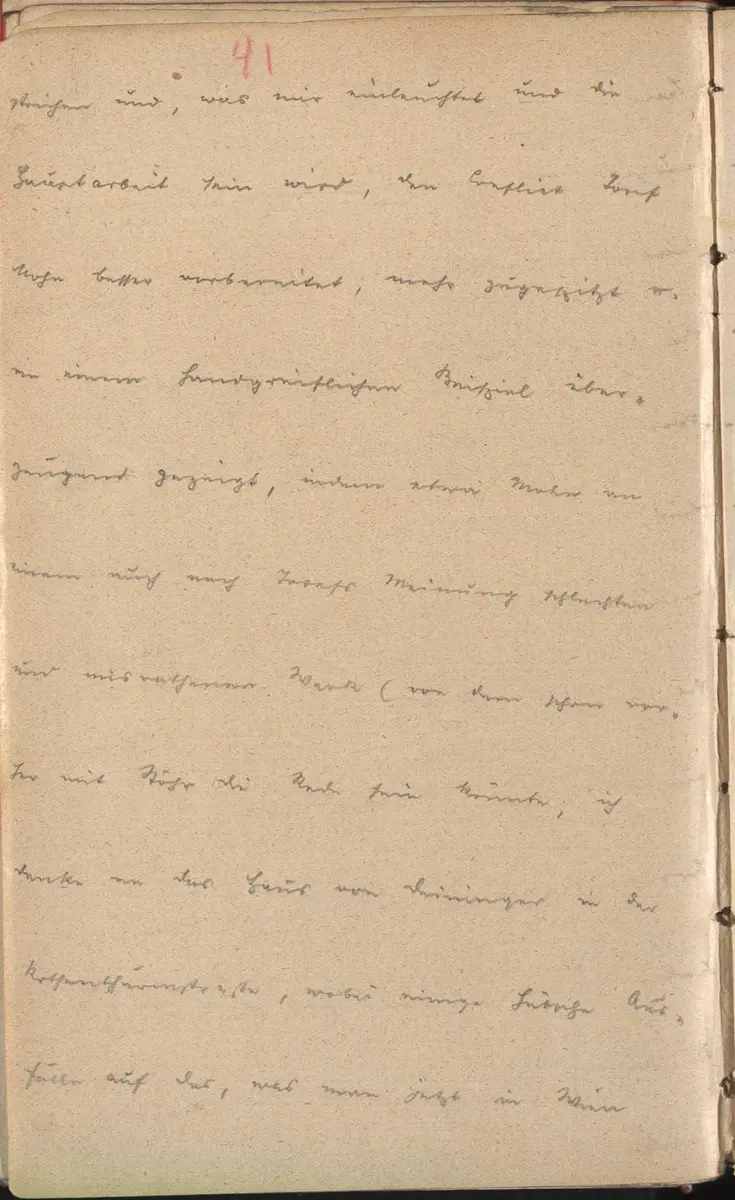 41
streichen und, was mir einleuchtet und die
Hauptarbeit sein wird, den Conflict Josef
Mohn besser vorbereitet, mehr zugespitzt u.
an einem handgreiflichen Beispiel über-
zeugend gezeigt, indem etwa Mohn an
einem auch nach Josefs Meinung schlechten
und misrathenen Werk (von dem schon vor-
her mit Stöhr die Rede sein könnte, ich
denke an das Haus von Deininger in der
Rothenthurmstraße, wobei einige hübsche Aus-
fälle auf das, was man jetzt in Wien